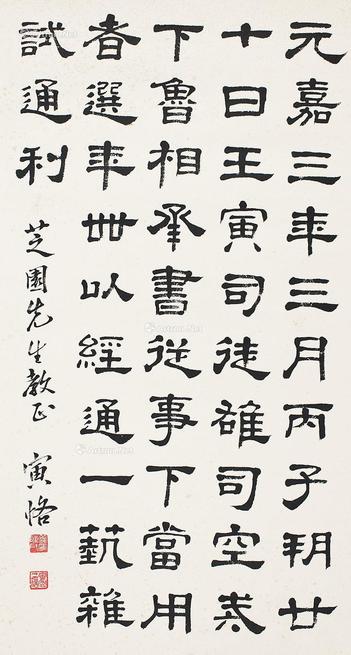 元嘉三年三月丙子朔廿
十日壬寅司徒雄司空戒
下魯相承書從事下當用
者選年卌以經通一蓺雜
試通利
芝園先生教正 寅恪